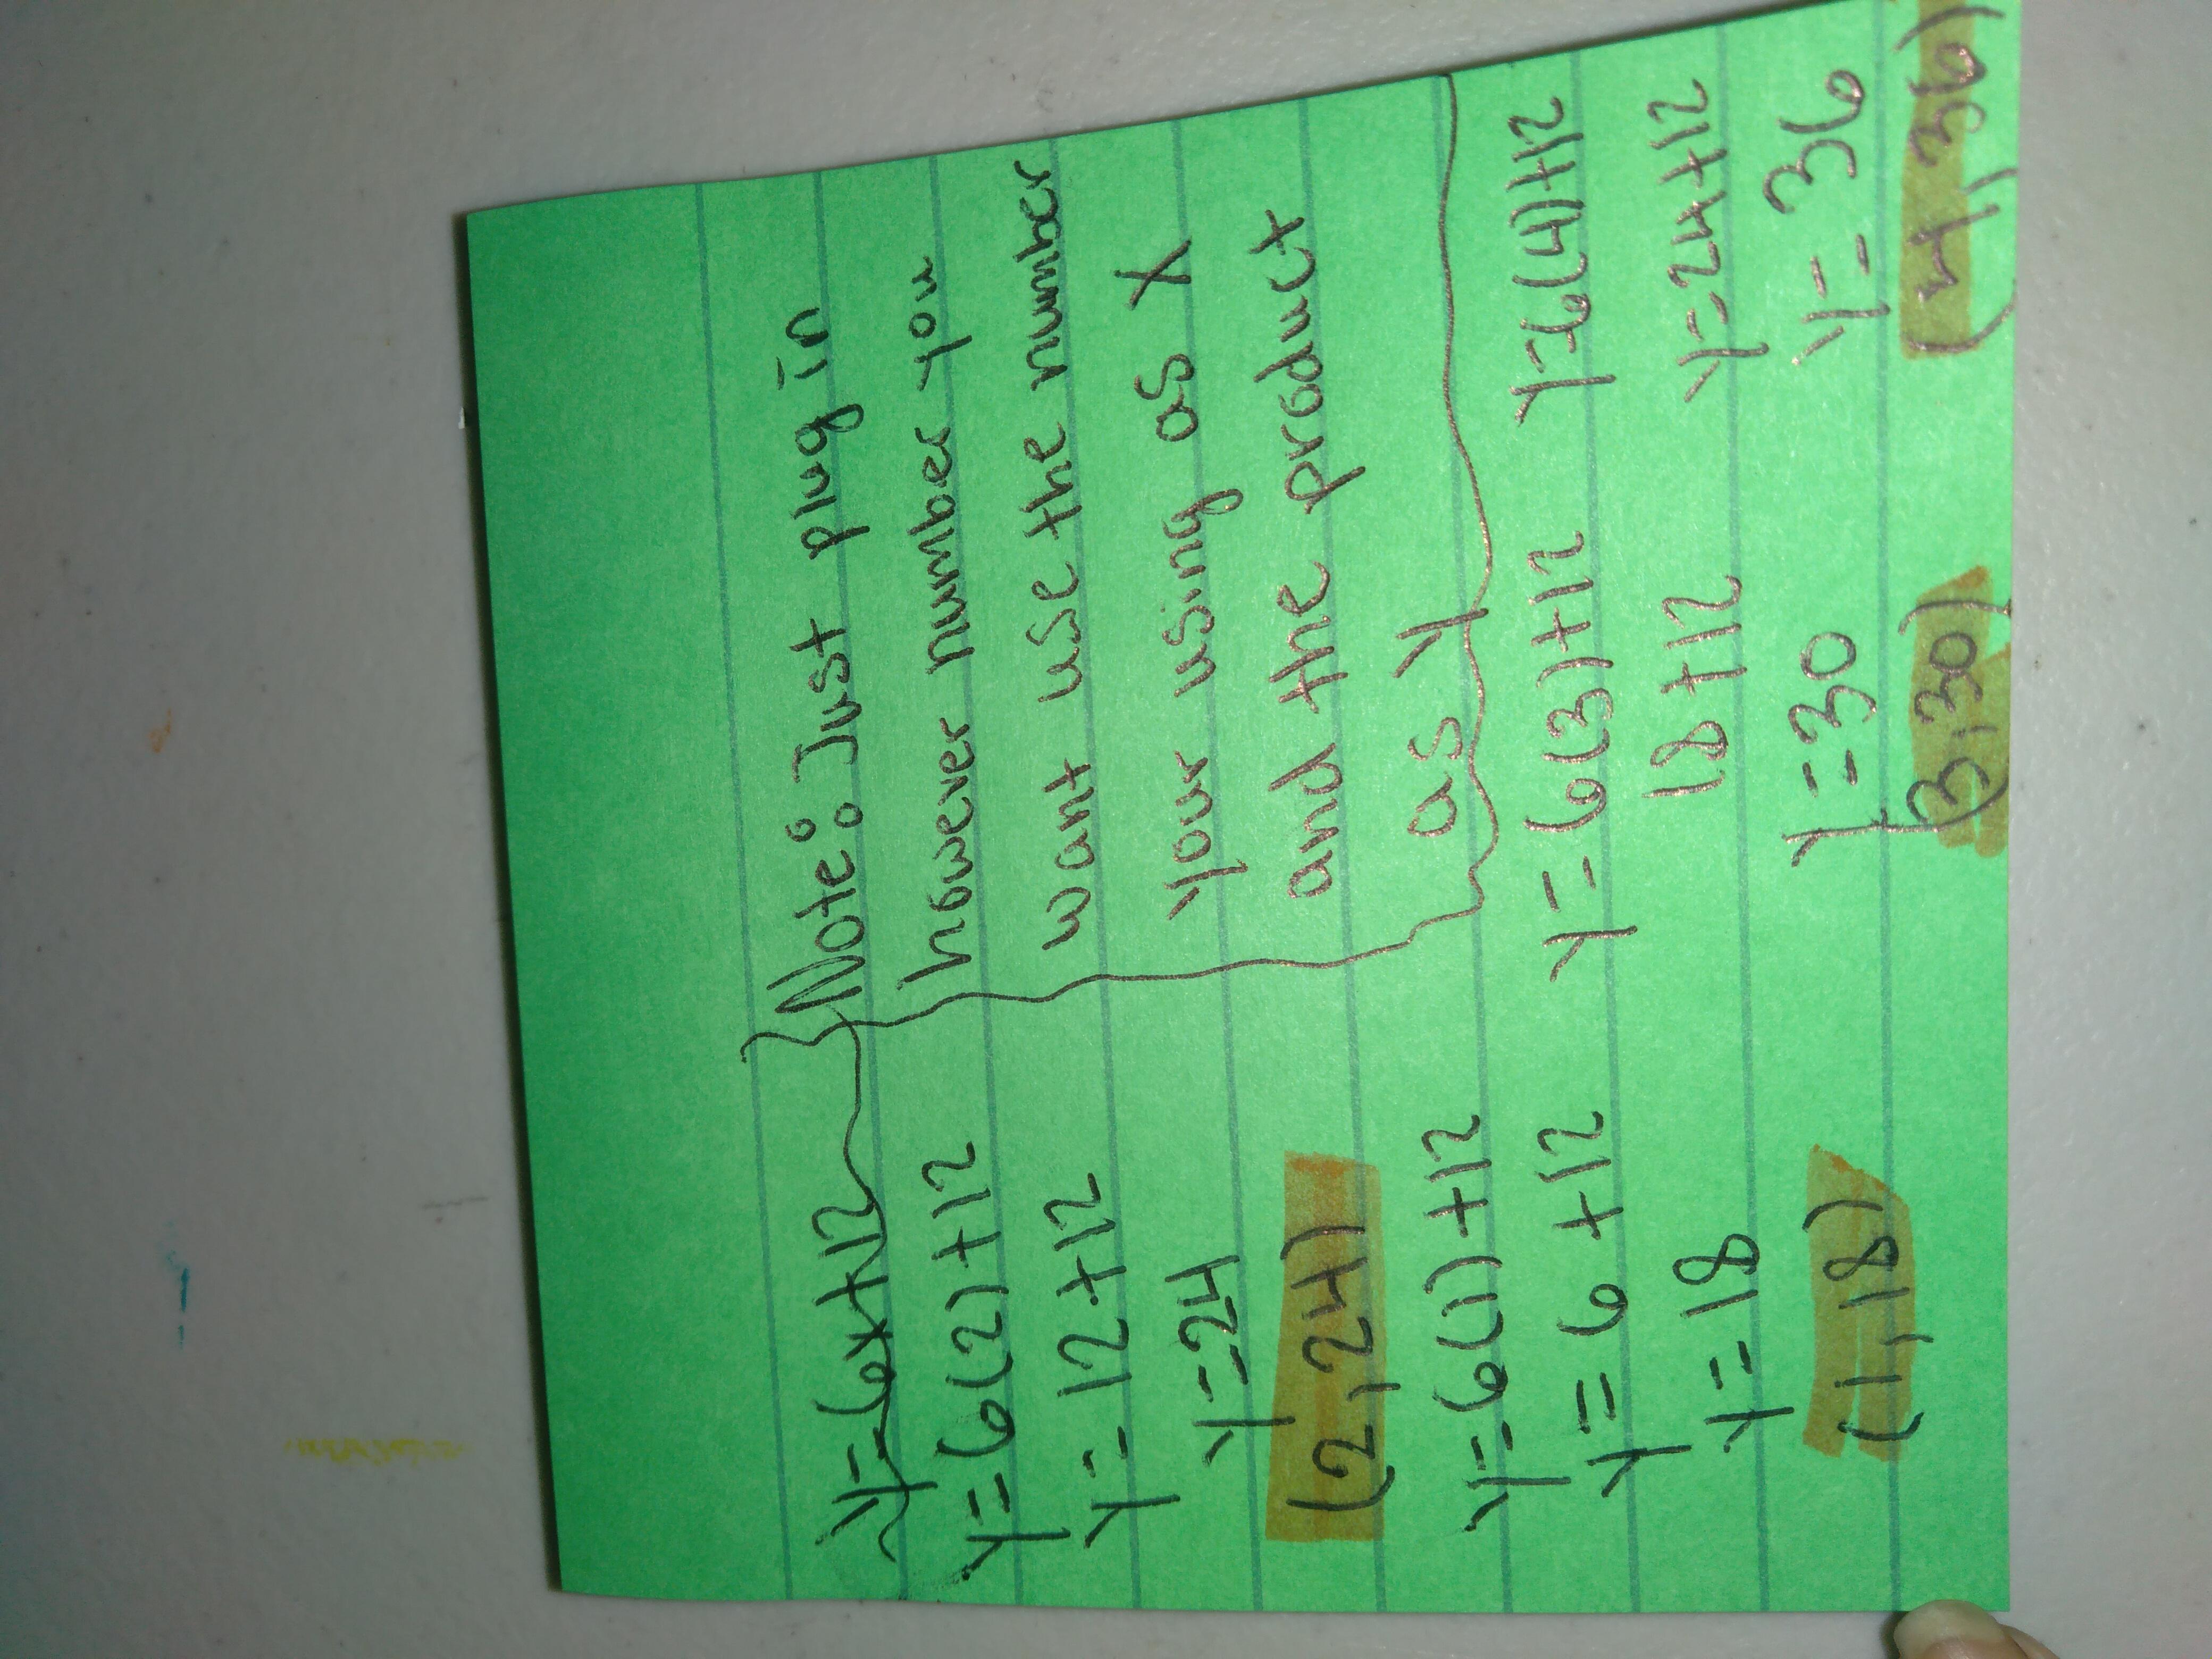 y=6x+12
y=6(2)+12
y=12+12
y=24
(2,24)
y=6(1)+12
y=6+12
y=18
(1,18)
Note: Just plug in
howener number you
want use the number
your using as X
and the product
as y
y=6(3)+12
18+12
y=30
(3,30)
y=6(4)+12
y=24+12
y=36
(4,36)